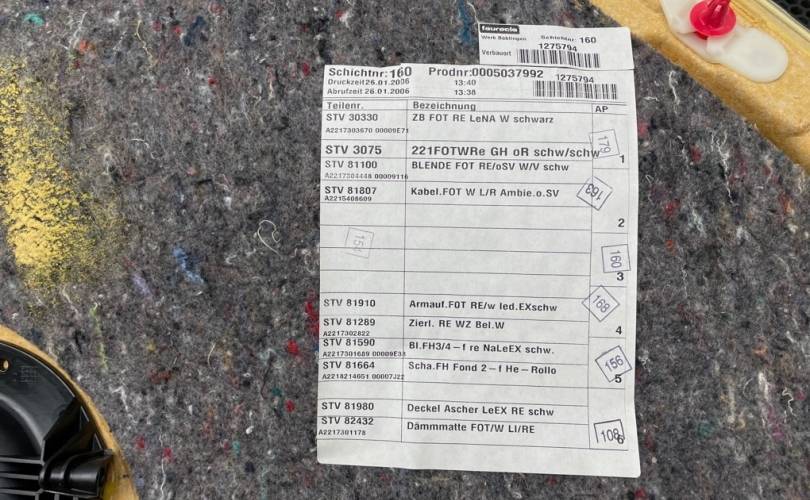 faurecia
Werk Böblingen Schichtnr: 160
Verbauort 1275794
Schichtnr:160 Prodnr:0005037992 1275794
Druckzeit26.01.2006 13:40
Abrufzeit 26.01.2006 13:38
Teilenr. Bezeichnung AP
STV 30330 ZB FOT RE LeNA W schwarz
A2217303670 00009E71
179
STV 3075 221FOTWRe GH oR schw/schw 1
STV 81100 BLENDE FOT RE/oSV W/V schw
A2217304448 00009116
STV 81807 Kabel.FOT W L/R Ambie.o.SV 163
A2215408609
2
154
160
3
STV 81910 Armauf.FOT RE/w led.EXschw 168
STV 81289 Zierl. RE WZ Bel.W 4
A2217302822
STV 81590 Bl.FH3/4-f re NaLeEX schw.
A2217301689 00009E38
STV 81664 Scha.FH Fond 2-f He-Rollo 156
A2218214651 00007J22 5
STV 81980 Deckel Ascher LeEX RE schw
STV 82432 Dämmmatte FOT/W LI/RE 108
A2217301178 6